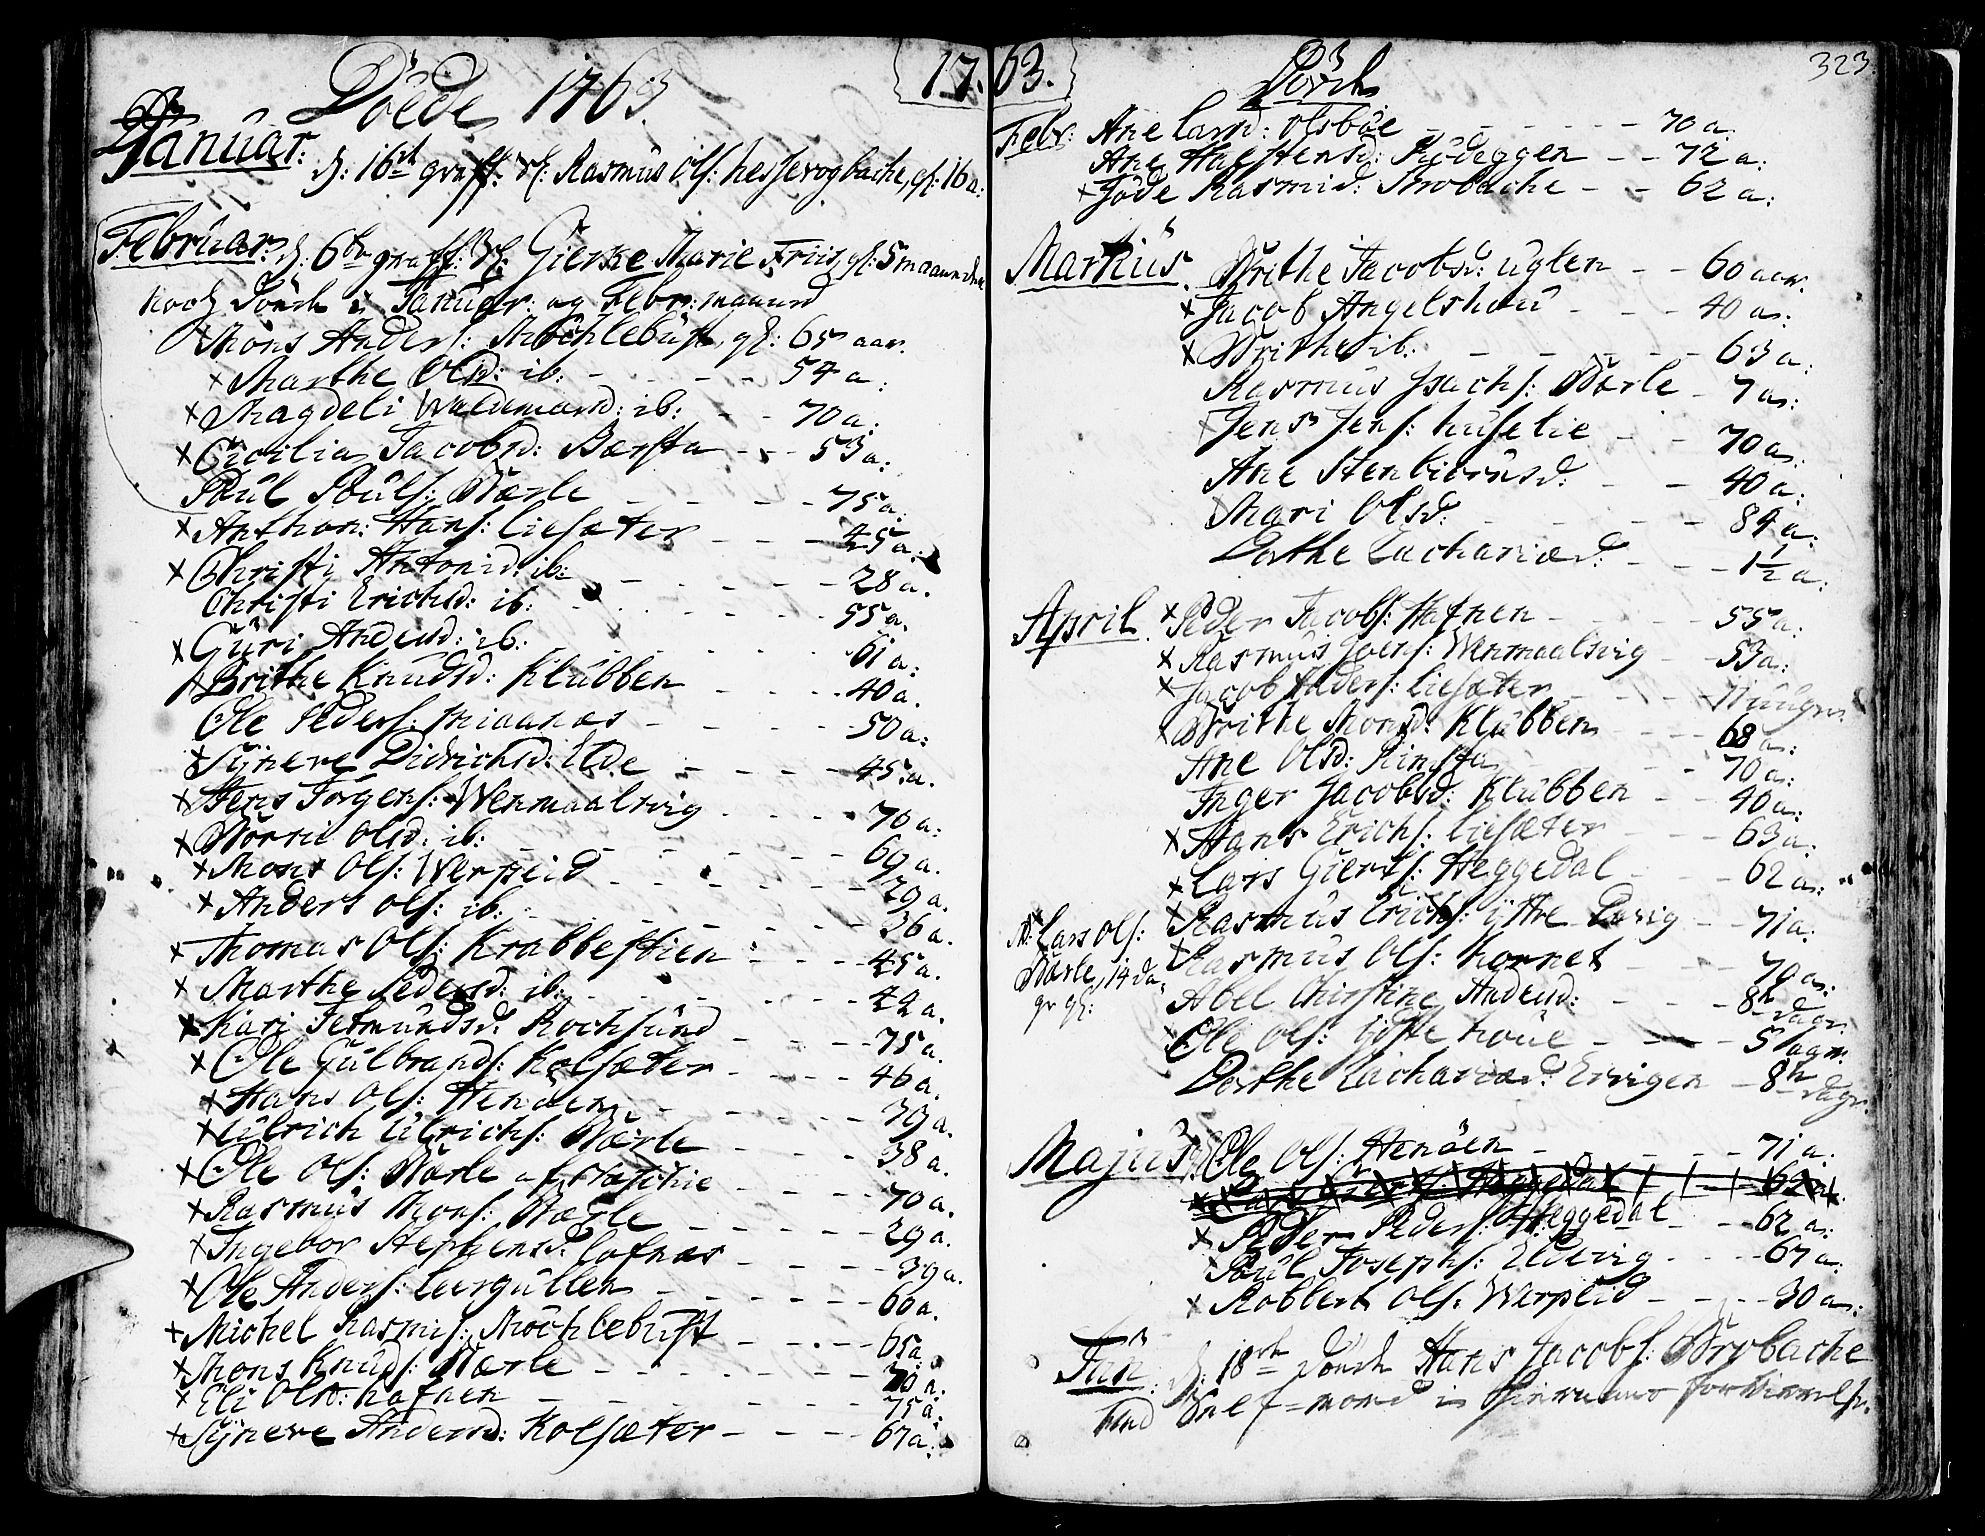 Döde 1763.
17.
Januar: d: 16de graff: Rasmus Ols: hesserogbache, gl: 16 a:
Februar: d: 6te graff: Gierske Marie Friis, gl: 5 maaneder
nock i Januar: og Febr: maaned
Mons Anders: Möchlebust, gl: 65 aar.
× Marthe Olsd: ib: - - - - 54 a:
× Magdeli Woldemarsd: ib: - - 70 a:
× Cicilia Jacobsd: Børsta - - - 53 a:
Poul Pouls: Dærle - - - - 75 a:
× Anthon: Hans: Liesæter - - - 45 a:
× Christi Antonid: ib: - - - - 28 a.
Christi Erichsd: ib: - - - - 55 a.
× Guri Andersd: ib: - - - - 61 a:
× Brithe Knudsd: Klubben - - - - 40 a.
Ole Peders: Miaanæs - - - - 50 a:
× Synneve Didrichsd: Elde - - - - 45 a.
× Jens Jörgens: Wenmaalsvig - - - - 70 a:
× Olsd: ib: - - - - 69 a.
× Mons Ols: Werpeid - - - - 29 a.
× Anders Ols: ib: - - - - 36 a.
× Thomas Ols: Krabbestien - - - 45 a.
× Marthe Pedersd: ib: - - - - 42 a.
× Kari Jetmundsd: Rochsund - - - 75 a.
× Ole Gulbrands: Kolsæter - - - - 46 a.
× Hans Ols: Henden - - - - 39 a.
× Ulrich Ulrichs: Dærle - - - - 38 a.
× Ole Ols: Dærle - - - 70 a.
× Rasmus Mons: Dærle - - - - 29 a.
× Ingebor Stephensd: Lofnæs - - - - 39 a.
× Ole Anders: Leergullen - - - - 60 a.
× Michel Rasmis: Möchlebust - - - - 65 a.
× Mons Knuds: Dærle - - - - 70 a.
× Eli Olsd: hafnen - - - - 75 a.
× Synneve Andersd: Kolsæter - - - - 67 a.
63.
323
Febr: Ane Larsd: Olsböe - - - - 70 a.
Ane Halstensd: Rüdeggen - - 72 a:
× Jöde Rasmid: - - 62 a:
Martius. Brithe Jacobsd: Uglen - - 60 aar.
× Jacob Angelshaũ - - - 40 a:
× Brithe ib: - - - - 63 a:
Rasmus Isachs: Dærle - 7 a:
Jens Jens: huselie - - 70 a.
Ane Stenbiörnsd: - - 40 a:
Mari Olsd: - - - - 84 a:
Dorthe Zachariæd: - - - 1½ a:
April × Peder Jacobs: Hafnen - - - - 55 a:
× Rasmus Joens: Wenmaalsvig - - 53 a:
× Jacob Anders: Liesæter - - -
× Brithe Monsd: Klubben - - - 68 a:
Ane Olsd: Rimsta - - - - 70 a:
Inger Jacobsd: Klubben - - 40 a:
× Hans Erichs: Liesæter - - - 63 a:
× Lars Gierts: Heggedal - - - 62 a:
× Rasmus Erichs: ijttre - - 71 a:
× Rasmus Ols: hornet - - - 70 a:
Abel Christine Andersd: - - - 8te dagr.
Ole Ols: - - - 5 dagr.
Dorthe Zachariæd: Ervigen - 8te dagr.
Nb: Lars Ols:
Dærle, 14 da=
gr gl:
Majus. Ole Ols: Henöen - - - - 71 a:
× Lars Gierts: Heggedal 62 a.
× Peder Peders: Heggedal - - - 62 a:
Poul Josephs: Eldevig - - - - 67 a.
× Robbert Ols: Werpeid - - - - 30 a:
Jun: d: 18de Hans Jacobs: